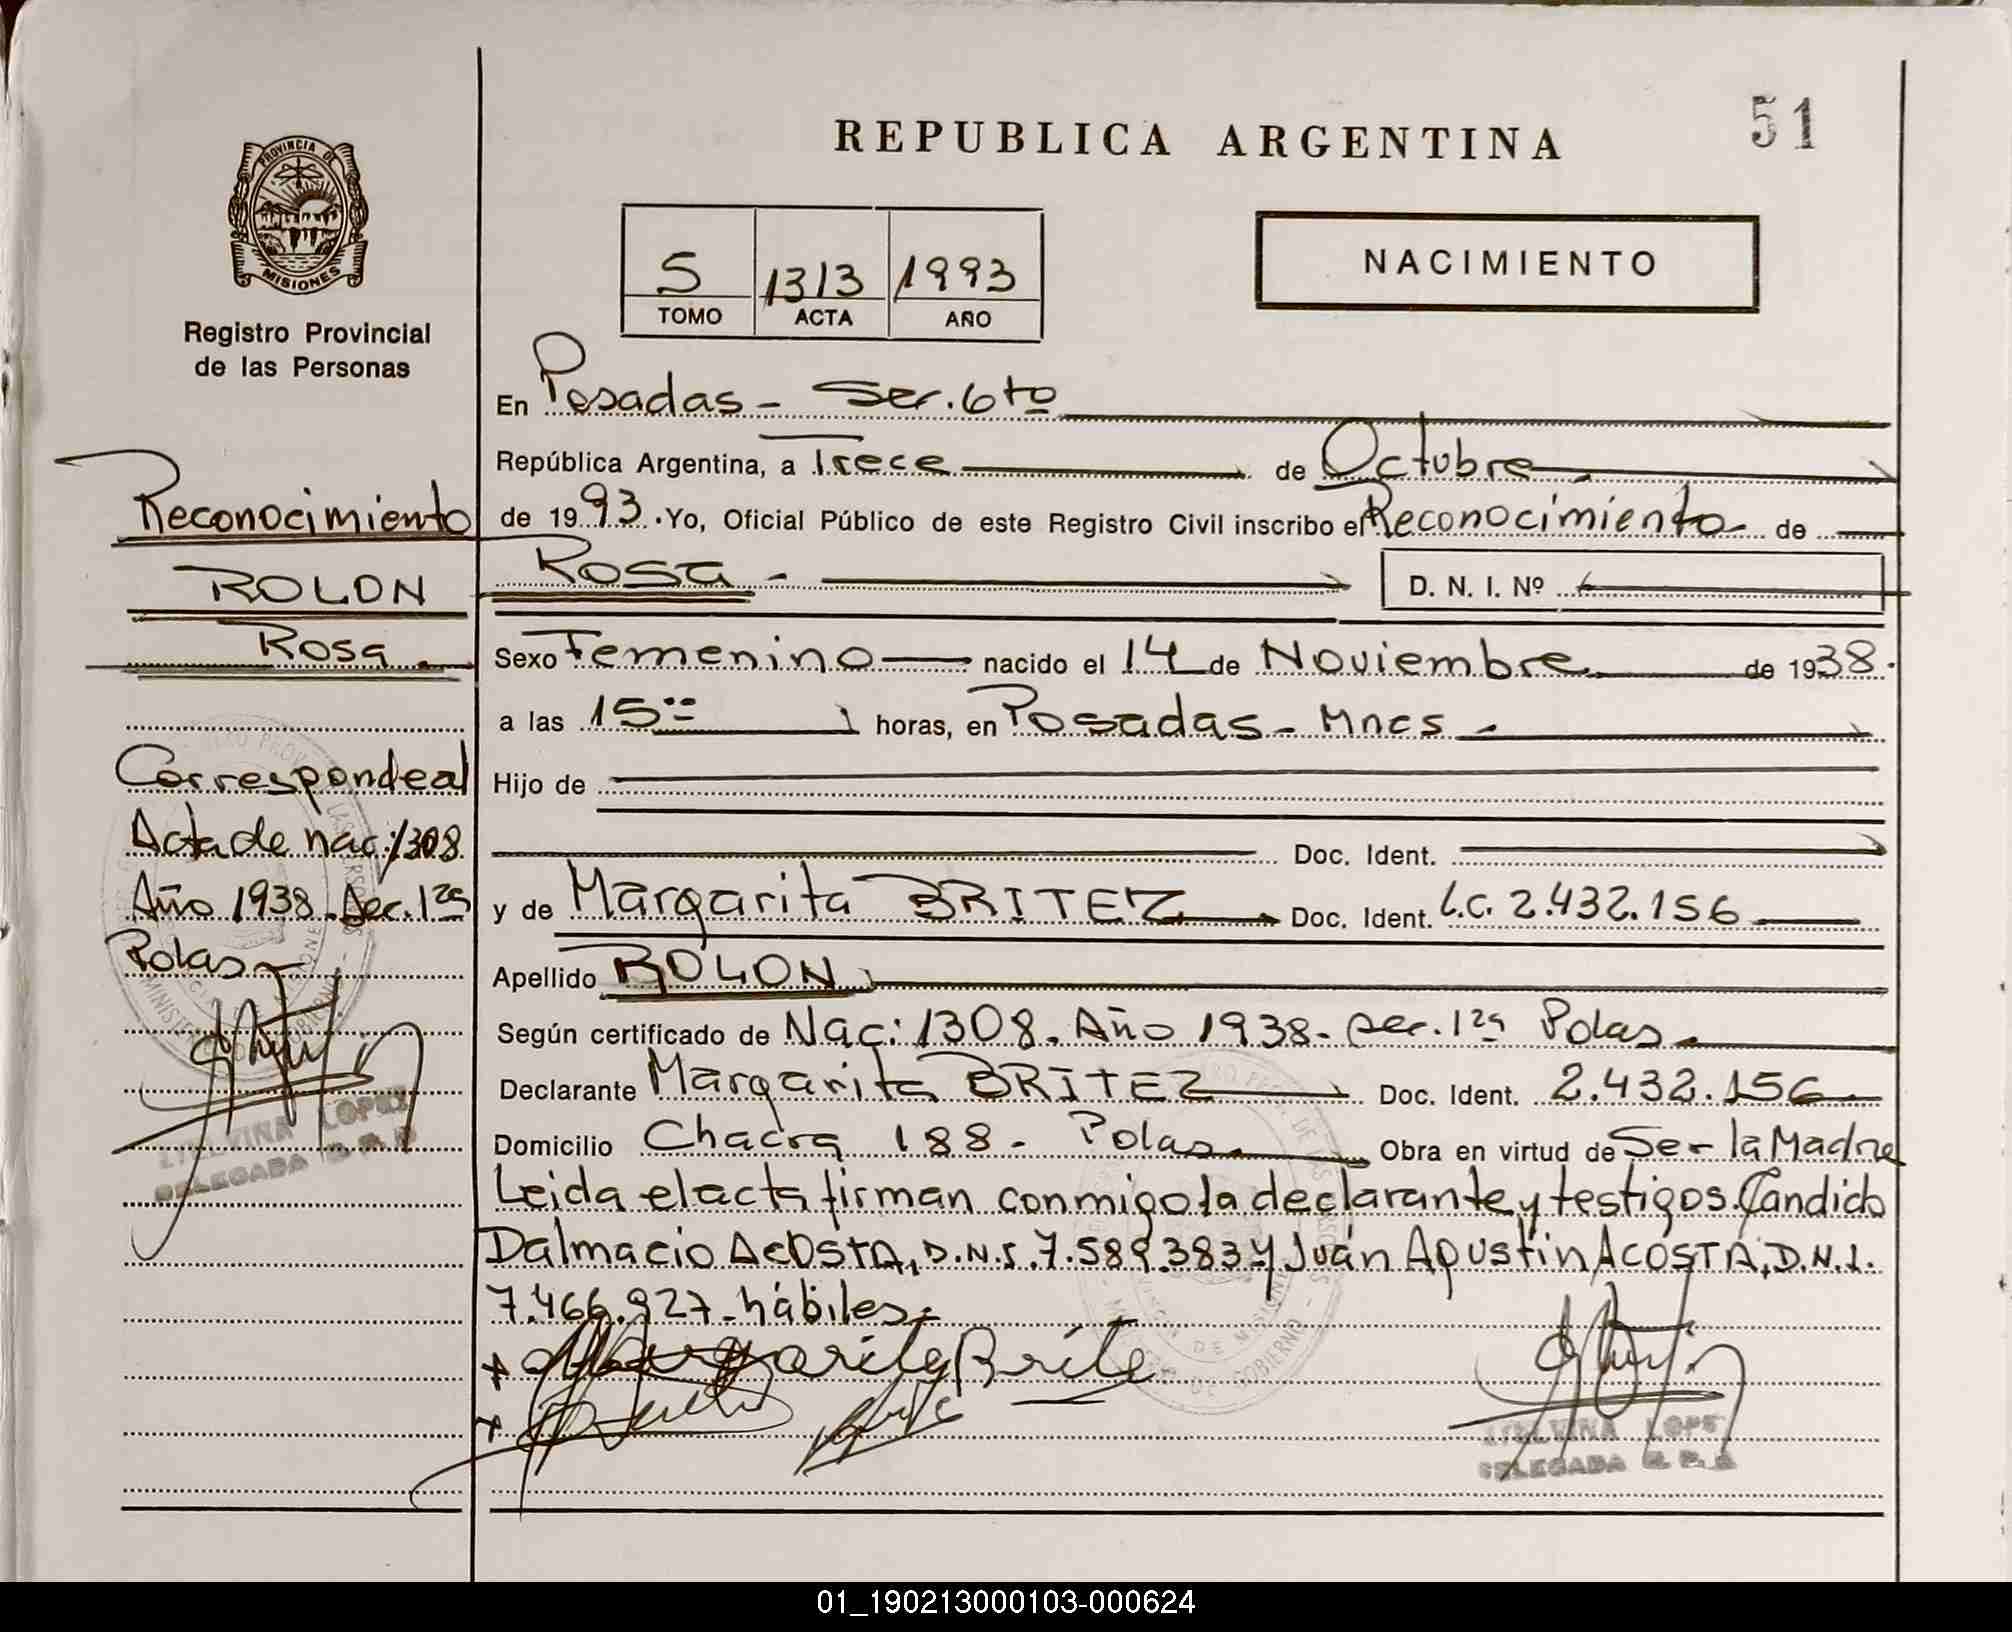 51
REPUBLICA ARGENTINA
PROVINCIA DE
MISIONES
Registro Provincial
de las Personas
S 1313 1993
TOMO ACTA AÑO
NACIMIENTO
Reconocimiento
ROLON
Rosa
Corresponde al
Acta de nac: 1308
Año 1938. Sec. 1ra
Pdas
LOPEZ
DELEGADA
En Posadas - Sec. 6to
República Argentina, a Trece de Octubre
de 1993. Yo, Oficial Público de este Registro Civil inscribo el Reconocimiento de
Rosa - D. N. I. Nº
Sexo Femenino nacido el 14 de Noviembre de 1938.
a las 15 horas, en Posadas - Mnes -
Hijo de
Doc. Ident.
y de Margarita BRITEZ Doc. Ident. L.C. 2.432.156
Apellido ROLON
Según certificado de Nac: 1308. Año 1938 - Sec. 1ra Pdas.
Declarante Margarita BRITEZ Doc. Ident. 2.432.156
Domicilio Chacra 188 - Pdas. Obra en virtud de Ser la Madre
Leida el acta firman conmigo la declarante y testigos. Candido
Dalmacio ACOSTA, D.N.I. 7.589.383 y Juán Agustin ACOSTA, D.N.I.
7.466.927 - hábiles.
Margarita Brite
LOPEZ
DELEGADA
01_190213000103-000624